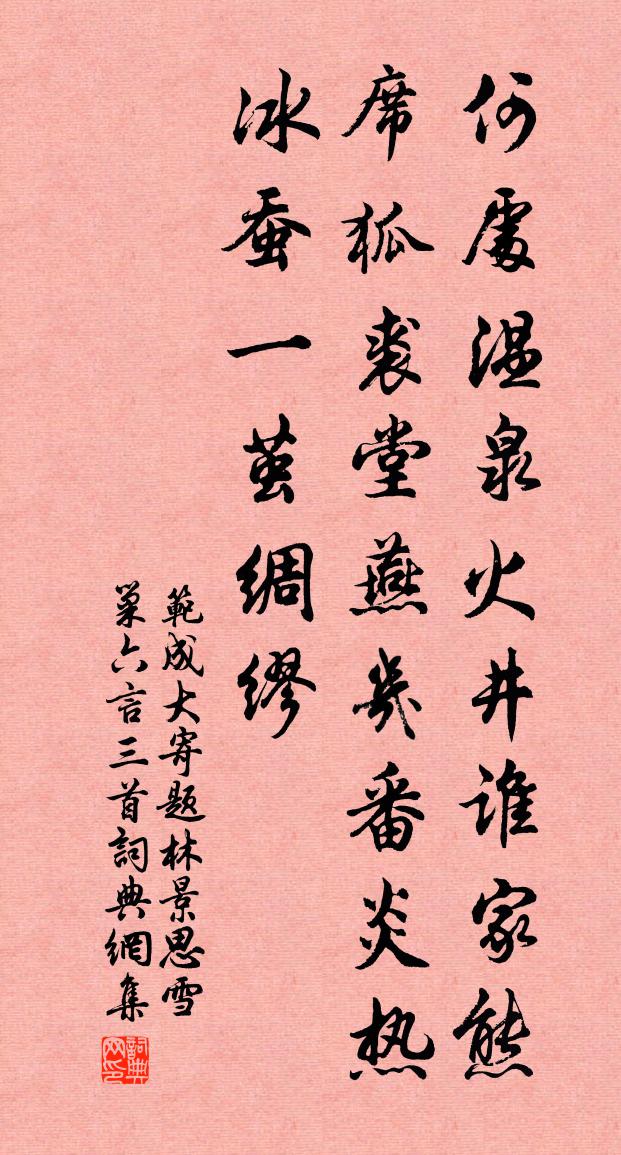 何處温泉火井谁家熊
席狐裘堂燕幾番炎热
冰蚕一茧綢缪
範成大寄题林景思雪
巢六言三首詞典網集
詞典网印